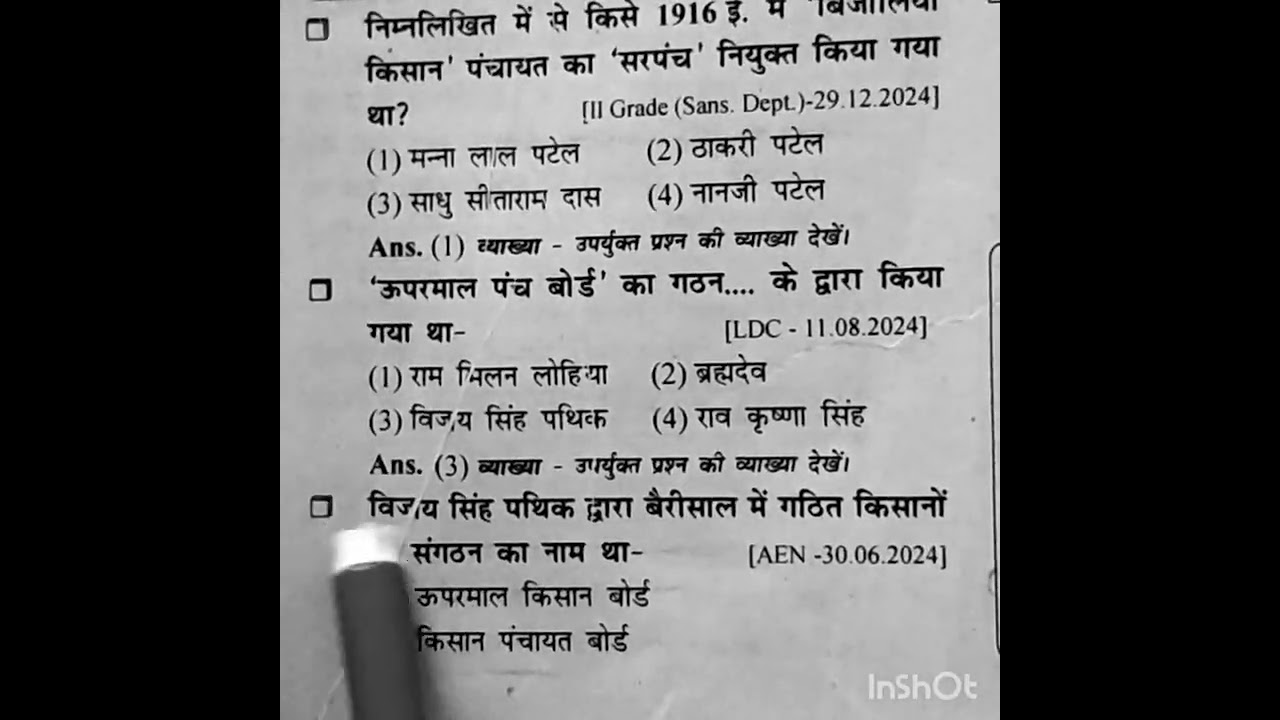 निम्नलिखित में से किसे 1916 ई. में 'बिजौलिया
किसान' पंचायत का 'सरपंच' नियुक्त किया गया
था? [II Grade (Sans. Dept.)-29.12.2024]
(1) मन्ना लाल पटेल (2) ठाकरी पटेल
(3) साधु सीताराम दास (4) नानजी पटेल
Ans. (1) व्याख्या - उपर्युक्त प्रश्न की व्याख्या देखें।
'ऊपरमाल पंच बोर्ड' का गठन.... के द्वारा किया
गया था- [LDC - 11.08.2024]
(1) राम मिलन लोहिया (2) ब्रह्मदेव
(3) विजय सिंह पथिक (4) राव कृष्णा सिंह
Ans. (3) व्याख्या - उपर्युक्त प्रश्न की व्याख्या देखें।
विजय सिंह पथिक द्वारा बैरीसाल में गठित किसानों
संगठन का नाम था- [AEN -30.06.2024]
ऊपरमाल किसान बोर्ड
किसान पंचायत बोर्ड
InShOt